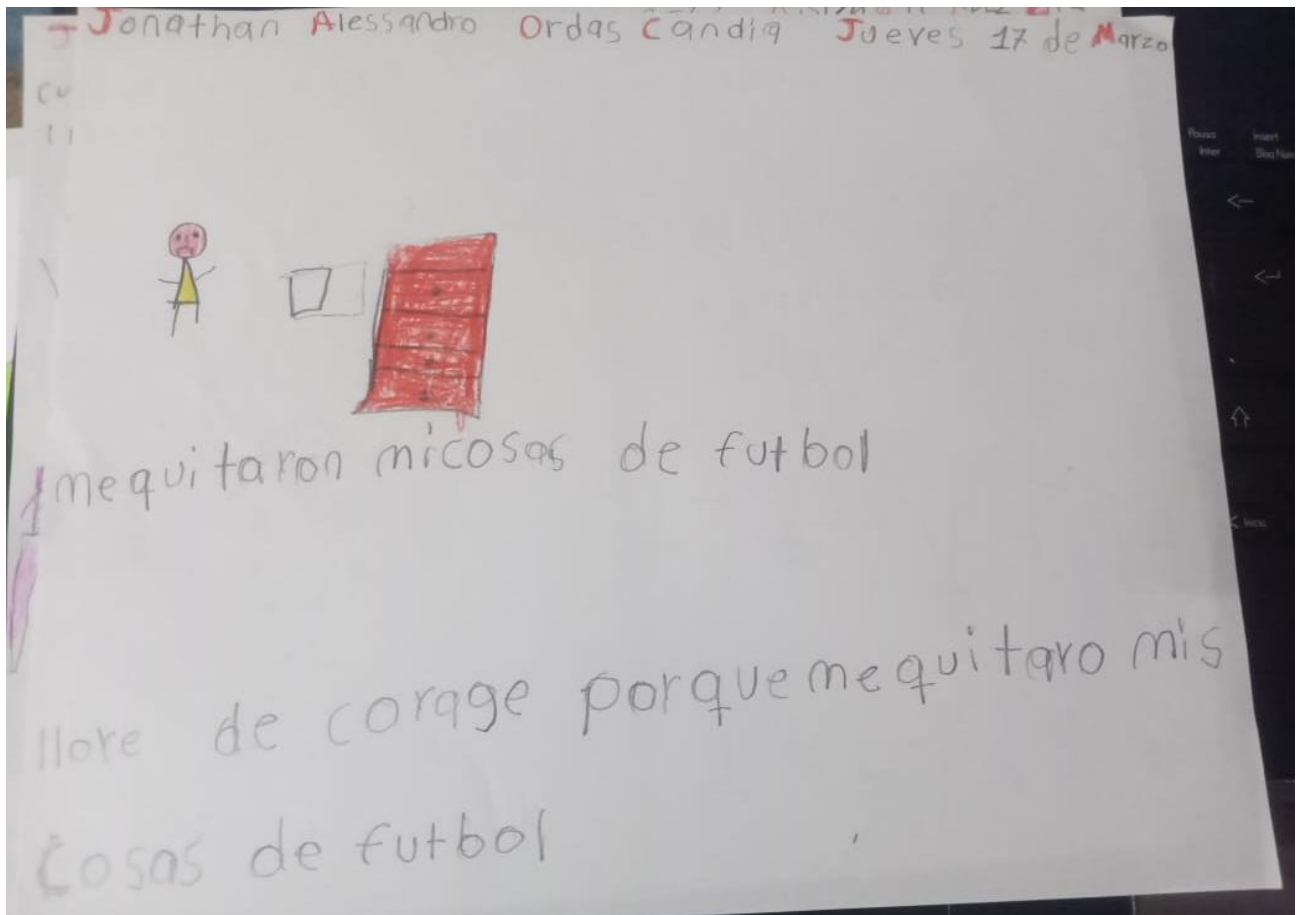 Jonathan Alessandro Ordas Candia Jueves 17 de Marzo
cu
mequitaron micosas de futbol
llore de corage porquemequitaro mis
cosas de futbol
Pausa
Inter
Insert
Inicio